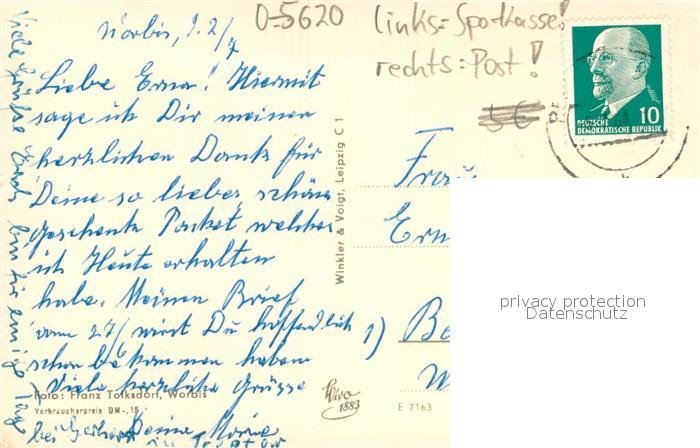 Worbis, d. 2/7
Liebe Erna! Hiermit
sage ich Dir meinen
herzlichen Dank für
Deine so lieber schöne
Geschenk Packet welches
ich Heute erhalten
habe. Meinen Brief
vom 27/ wirst Du hoffendlich
schon bekommen haben
Viele herzliche Grüsse
Deine
bei Gerhard in
Viele Grüße
bin für einige Tage
Foto: Franz Tolksdorf, Worbis
Verbraucherpreis DM -,15
Winkler & Voigt, Leipzig C 1
1883
E 7163
0-5620
links=Sparkasse!
rechts=Post!
10
DEUTSCHE
DEMOKRATISCHE REPUBLIK
Frau
Ern
1)
privacy protection
Datenschutz